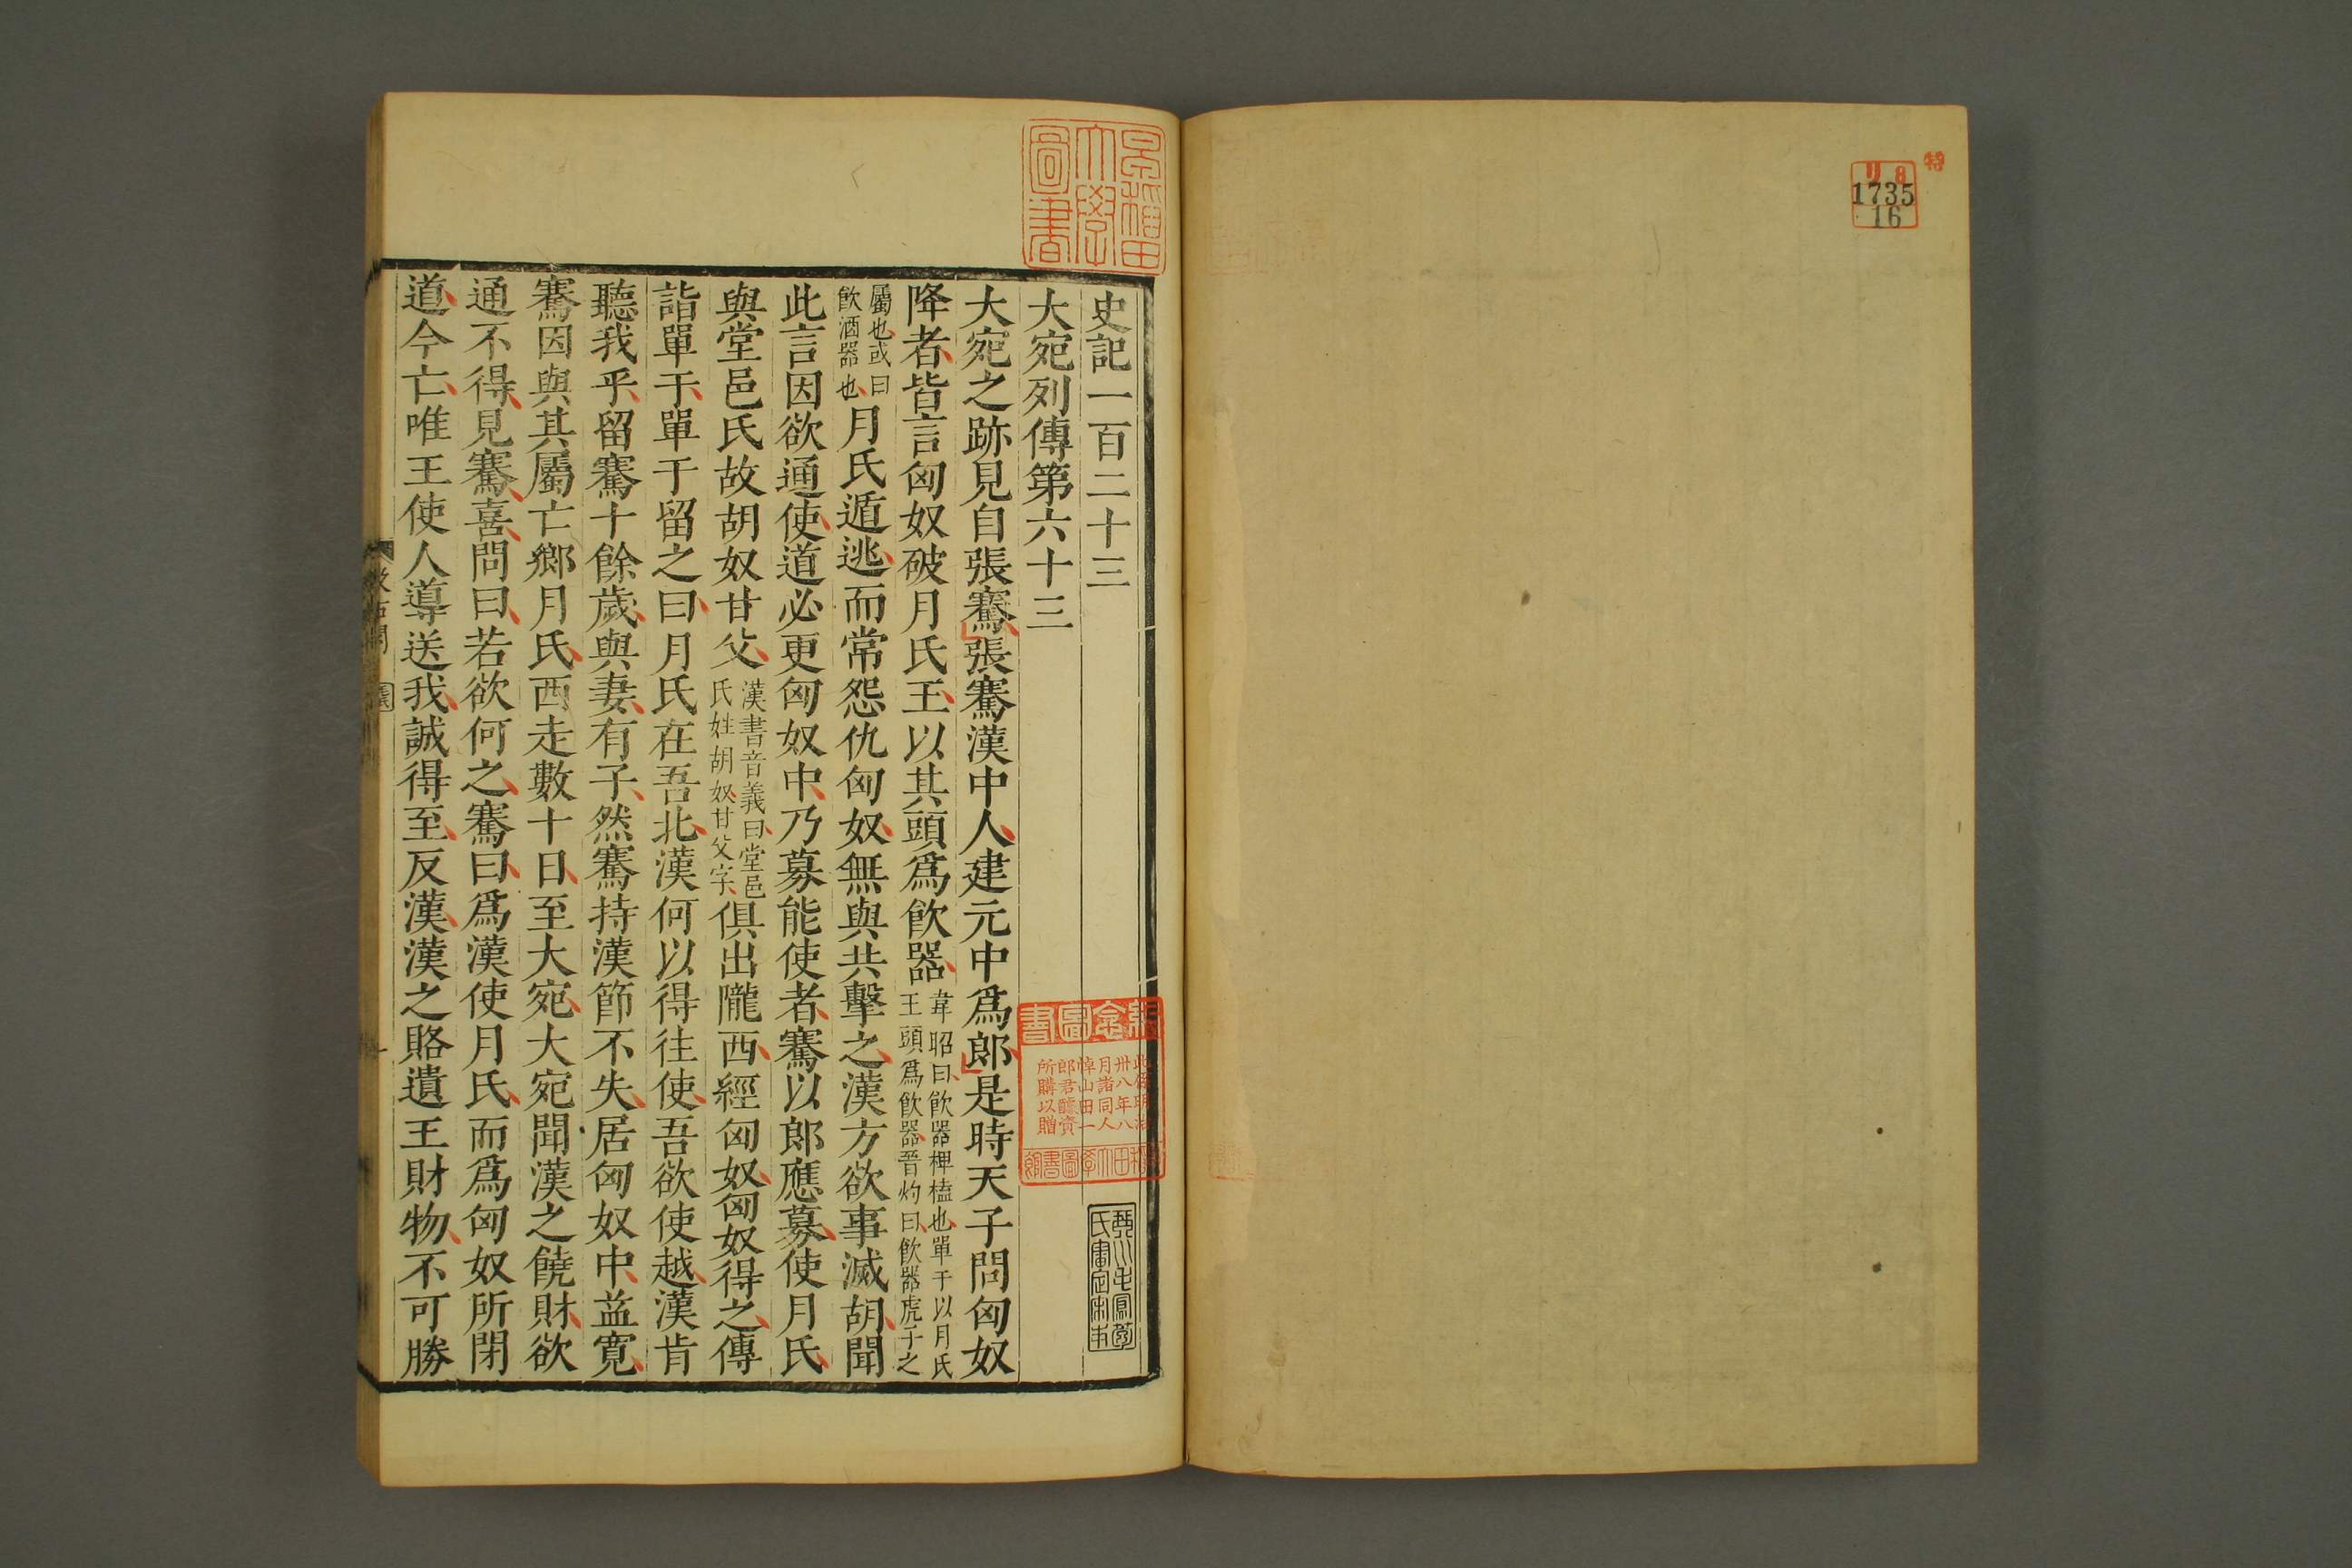 特
リ8
1735
16
早稲田
大學
圖書
史記一百二十三
大宛列傳第六十三
大宛之跡見自張騫張騫漢中人建元中爲郎是時天子問匈奴
降者皆言匈奴破月氏王以其頭爲飮器韋昭曰飮器椑榼也單于以月氏
王頭爲飮器晉灼曰飮器虎子之
屬也或曰
飮酒器也月氏遁逃而常怨仇匈奴無與共擊之漢方欲事滅胡聞
此言因欲通使道必更匈奴中乃募能使者騫以郎應募使月氏
與堂邑氏故胡奴甘父漢書音義曰堂邑
氏姓胡奴甘父字俱出隴西經匈奴匈奴得之傳
詣單于單于留之曰月氏在吾北漢何以得往使吾欲使越漢肯
聽我乎留騫十餘歲與妻有子然騫持漢節不失居匈奴中益寬
騫因與其屬亡鄉月氏西走數十日至大宛大宛聞漢之饒財欲
通不得見騫喜問曰若欲何之騫曰爲漢使月氏而爲匈奴所閉
道今亡唯王使人導送我誠得至反漢漢之賂遺王財物不可勝
念圖書
此係明治
卅八年八
月諸同人
悼山田一
郎君醵資
所購以贈
田大學圖書館
毛鳳苞
氏審定宋本